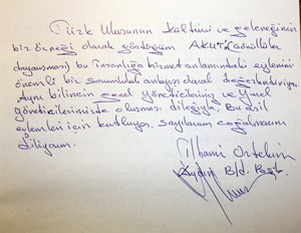 Türk Ulusunun kültürü ve geleneğinin
bir örneği olarak gördüğüm AKUT'u (Gönüllüler
dayanışması) bu insanlığa hizmet anlamındaki eylemini
önemli bir sorumluluk anlayışı olarak değerlendiriyor.
Aynı bilincin genel yöneticilerimiz ve yerel
yöneticilerimizde oluşması dileğiyle, Bu asil
eylemleri için kutluyor, sayılarının çoğalmasını
diliyorum.
İlhami Ortekin
Aydın Bld. Bşk.